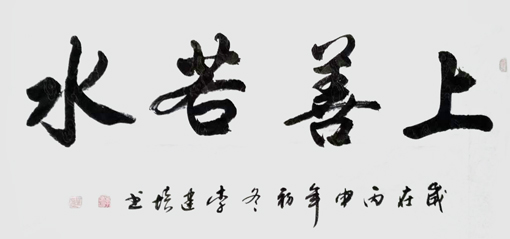 上善若水
歲在丙申年初冬李建培书